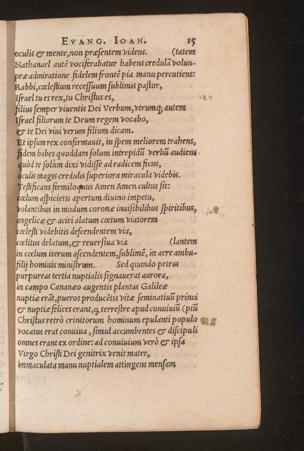 EVANG. IOAN. 15
oculis & mente, non præsentem videns. (tatem
Nathanael autē vociferabatur habens credulā volun-
præ admiratione fidelem frontē pia manu percutiens:
Rabbi, cœlestium recessuum sublimis pastor,
Israel tu es rex, tu Christus es,
filius semper viventis Dei Verbum, vtrumq; autem
Israel filiorum te Deum regem vocabo,
& te Dei viui verum filium dicam.
Et ipsum rex confirmauit, in spem meliorem trahens,
fidem habes quoddam solum intrepidū verbū audiens
quòd te solùm dixi vidisse ad radicem ficus,
oculis magis credulis superiora miracula videbis.
Testificans firmiloquus Amen Amen cultus sit:
cœlum aspicietis apertum diuino impetu,
volantibus in modum coronæ inuisibilibus spiritibus,
angelicæ & aciei alatam cœtum viatorem
cœlesti videbitis descendentem via,
cœlitus delatum, & reuersiua via (lantem
in cœlum iterum ascendentem, sublimē, in aere ambu-
filij hominis ministrum. Sed quando petras
purpureas tertia nuptialis signauerat aurora,
in campo Cananæo augentis plantas Galileæ
nuptiæ erāt, pueros producētis vitæ seminatiuū princi
& nuptiæ felices erant, q; terrestre apud conuiuiū (piū
Christus retrò crinitorum hominum epulanti populo
vocatus erat conuiua, simul accumbentes & discipuli
omnes erant ex ordine: ad conuiuium verò & ipsa
Virgo Christi Dei genitrix venit mater,
immaculata manu nuptialem attingens mensam